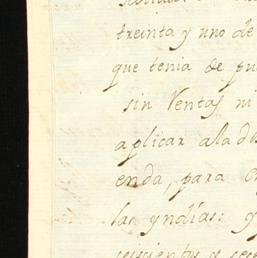 treinta y uno de
que tenia de pu
sin Ventas ni
aplicar ala d
enda, para
las yndias: y